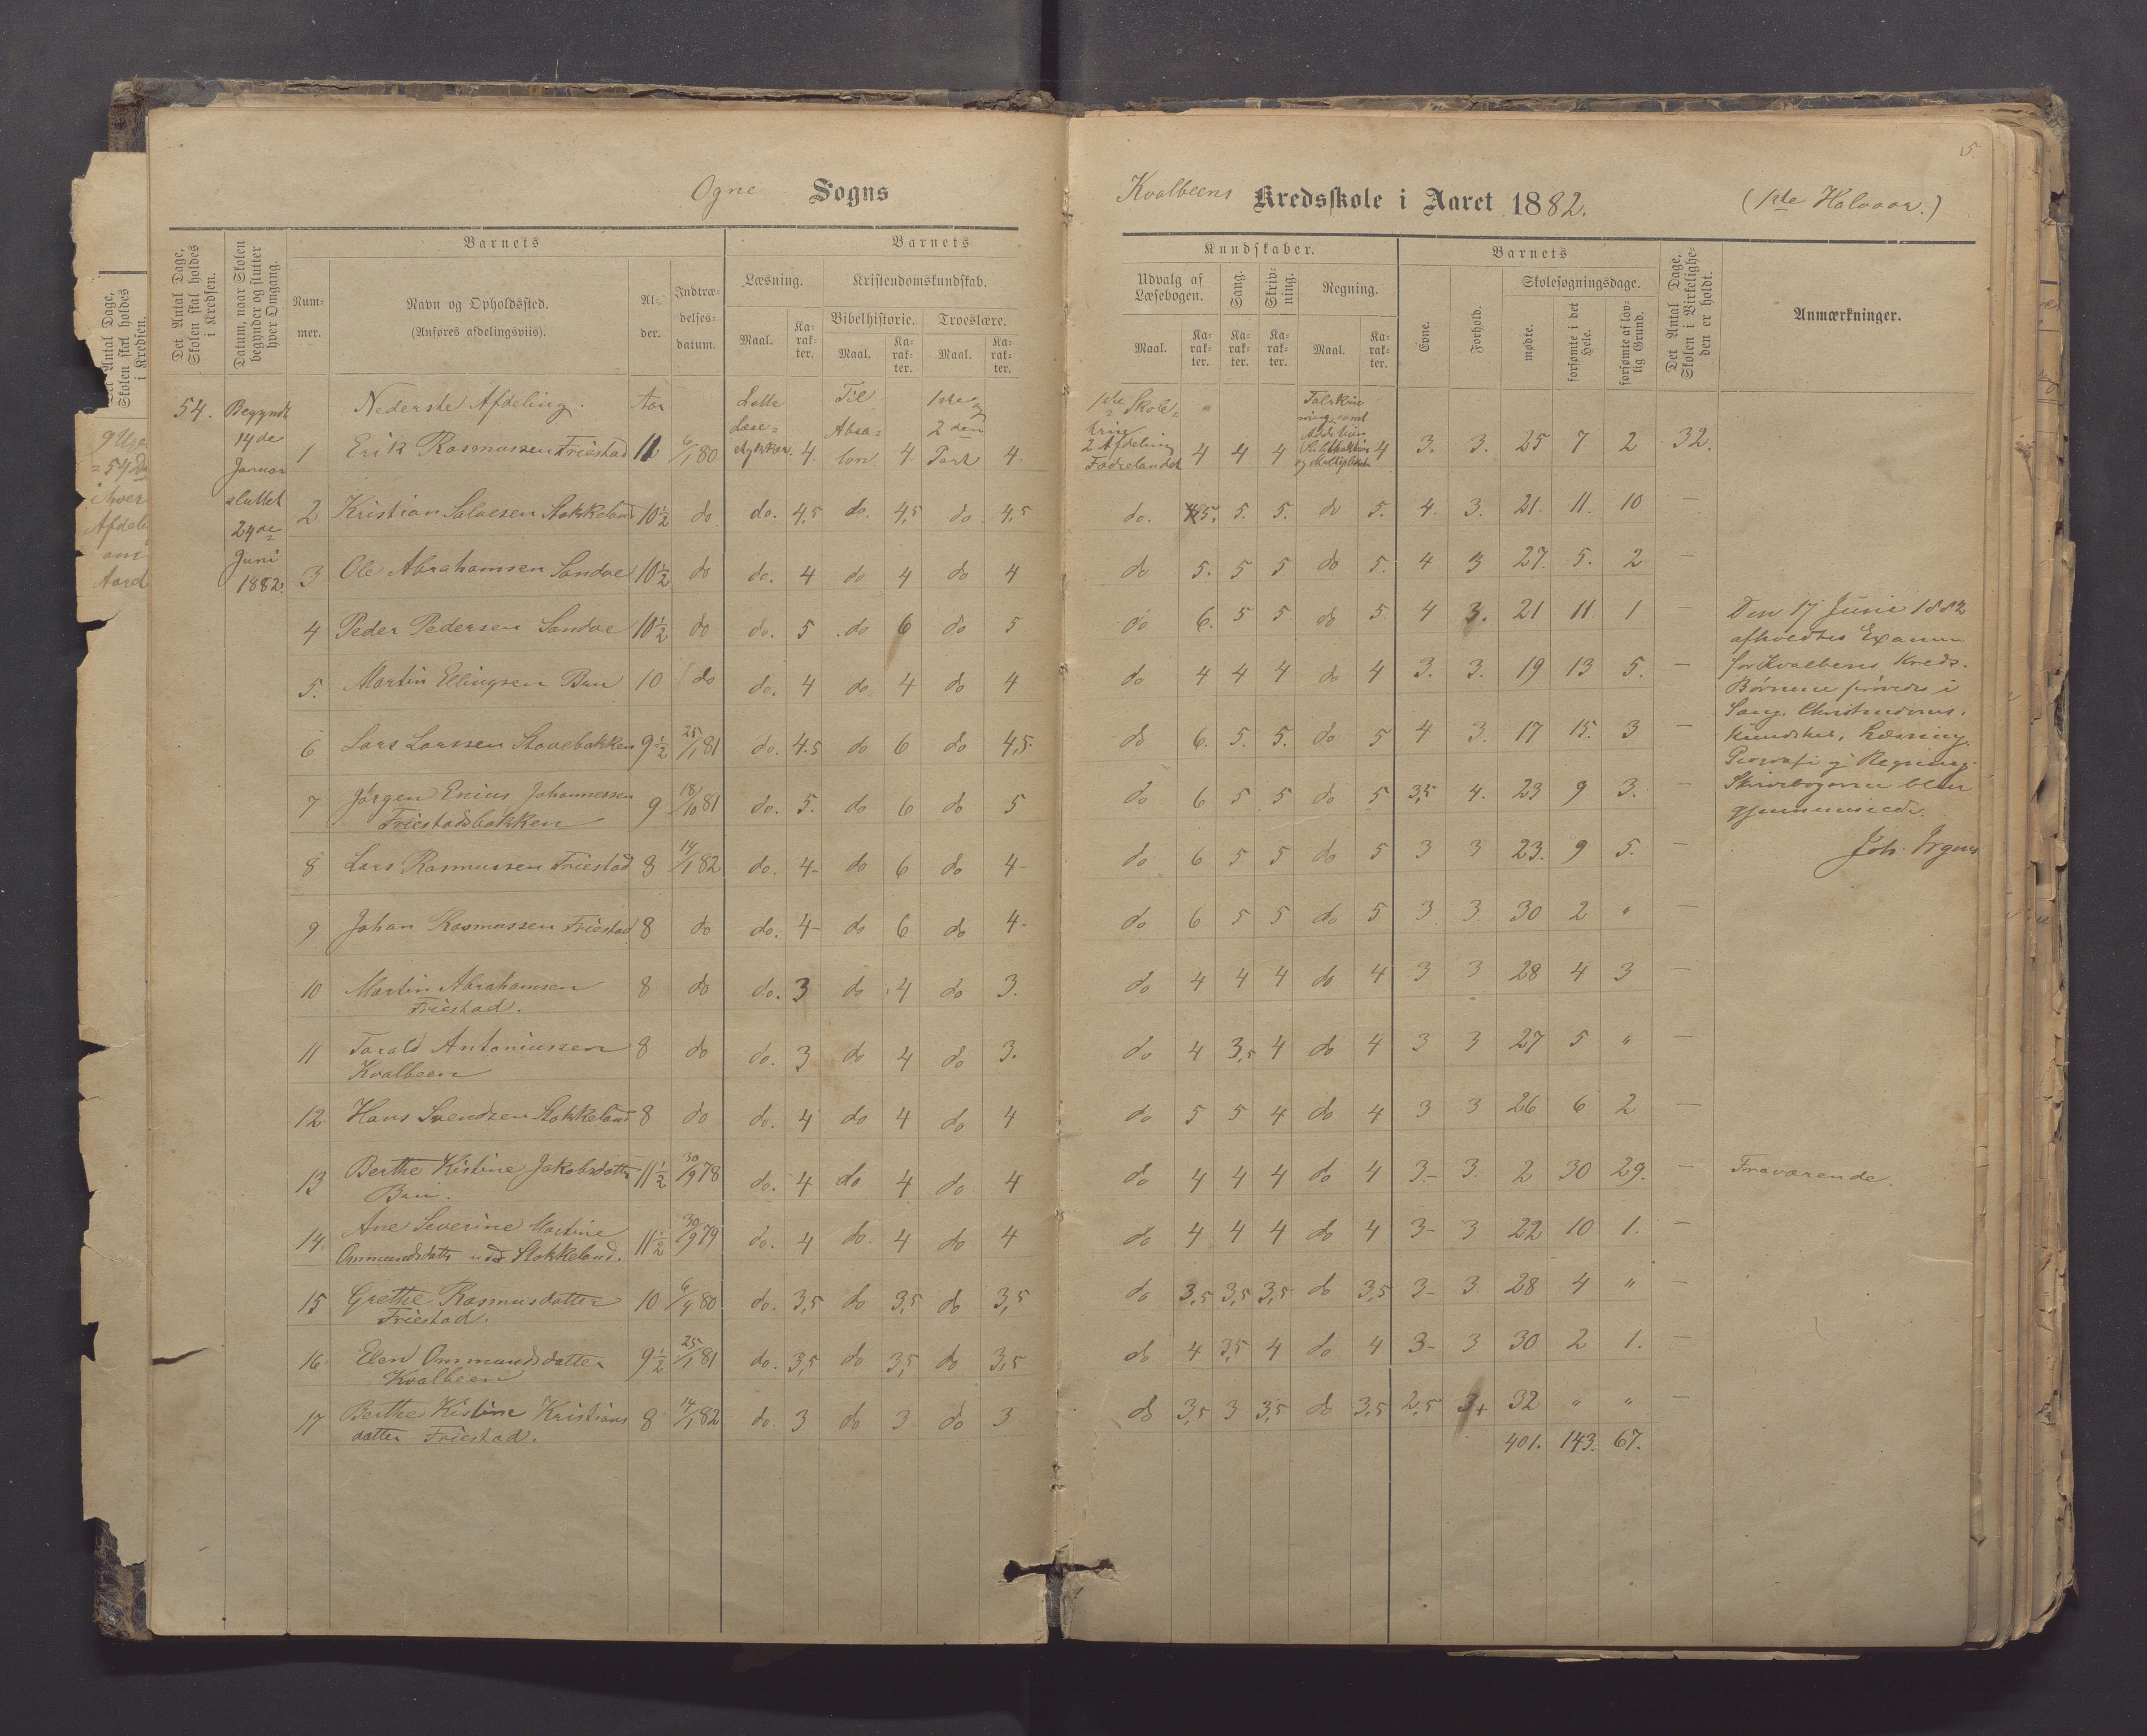 5
Ogne Sogns Kvalbeens Kredsskole i Aaret 1882. (1ste Halvaar.)
Det Antal Dage, Skolen skal holdes i Kredsen.
Datum, naar Skolen begynder og slutter hver Omgang.
Barnets
Num-mer.
Navn og Opholdssted.
(Anføres afdelingsviis).
Al-der.
Indtræ-delses-datum.
Barnets
Læsning.
Maal. Ka-rak-ter.
Kristendomskundskab.
Bibelhistorie. Troeslære.
Maal. Ka-rak-ter. Maal. Ka-rak-ter.
Kundskaber.
Udvalg af Læsebogen.
Maal. Ka-rak-ter.
Sang. Ka-rak-ter.
Skriv-ning. Ka-rak-ter.
Regning.
Maal. Ka-rak-ter.
Barnets
Evne. Forhold.
Skolesøgningsdage.
mødte. forsømte i det Hele. forsømte af lov-lig Grund.
Det Antal Dage, Skolen i Virkelighe-den er holdt.
Anmærkninger.
54. Begyndt 14de Januar sluttet 24de Juni 1882.
Nederste Afdeling. Aar
1 Erik Rasmussen Friestad 11 6/1 80 Lette Læse=stykker. 4. Til Absa=lon. 4 1ste og 2den Part 4. 1ste Skole= 2 Afdeling Fædrelandet 4 4 4 4 3. 3. 25 7 2 32.
2 Kristian Salvesen Stokkeland 10½ do do. 4,5 do. 4,5 do 4,5 do. 5. 5. 5. do 5. 4. 3. 21. 11. 10 —
3 Ole Abrahamsen Sandve 10½ do do. 4 do 4 do 4 do 5. 5 5 do 5. 4 3 27. 5. 2 —
4 Peder Pedersen Sandve 10½ do do. 5 do 6 do 5 do 6. 5 5 do 5 4 3. 21 11 1 —
5. Martin Ellingsen Bru 10 do do. 4 do 4 do 4 do 4 4 4 do 4 3. 3. 19 13 5. —
6 Lars Larssen Stavebakken 9½ 25/1 81 do. 4.5 do 6 do 4,5. do 6. 5. 5. do 5 4 3. 17 15. 3 —
7 Jørgen Enius Johannessen Friestadbakken 9 18/10 81 do. 5. do 6 do 5 do 6 5 5 do 5 3,5 4. 23 9 3. —
8 Lars Rasmussen Friestad 8 14/1 82 do. 4- do 6 do 4- do 6 5 5 do 5 3 3 23. 9 5. —
9 Johan Rasmussen Friestad 8 do do. 4- do 6 do 4- do 6 5 5 do 5 3 3. 30 2 " —
10 Martin Abrahamsen Friestad. 8 do do. 3 do 4 do 3. do 4 4 4 do 4 3 3 28 4 3 —
11 Torald Antoniussen Kvalbeen 8 do do. 3 do 4 do 3. do 4 3,5 4 do 4 3 3 27 5 " —
12 Hans Svendsen Stokkeland 8 do do. 4 do 4 do 4 do 5 5 4 do 4 3 3 26 6 2 —
13 Berthe Kistine Jakobsdatter Bru. 11½ 30/9 78 do. 4 do 4 do 4 do 4 4 4 do 4 3- 3. 2 30 29. — Fraværende.
14 Ane Severine Martine Ommundsdatter Stokkeland. 11½ 30/9 79 do. 4 do. 4 do 4 do 4 4 4 do 4 3- 3 22 10 1. —
15 Grethe Rasmusdatter Friestad. 10 6/4 80 do. 3,5 do 3,5 do 3,5 do 3,5 3,5 3,5 do 3,5 3- 3 28 4 " —
16 Elen Ommundsdatter Kvalbeen 9½ 25/1 81 do. 3,5 do 3,5 do 3,5 do 4 3,5 4 do 4 3- 3 30 2 1. —
17 Berthe Kistine Kristians datter Friestad. 8 14/1 82 do 3 do 3 do 3 do 3,5 3 3,5 do 3,5 2,5 3+ 32 " " —
401. 143. 67.
Den 17 Juni 1882
afholdtes Examen
for Kvalbens Kreds.
Børnene prøvedes i
Sang. Christendoms.
kundskab, Læsning.
Geografi og Regning.
Skrivebøgerne blev
Joh.